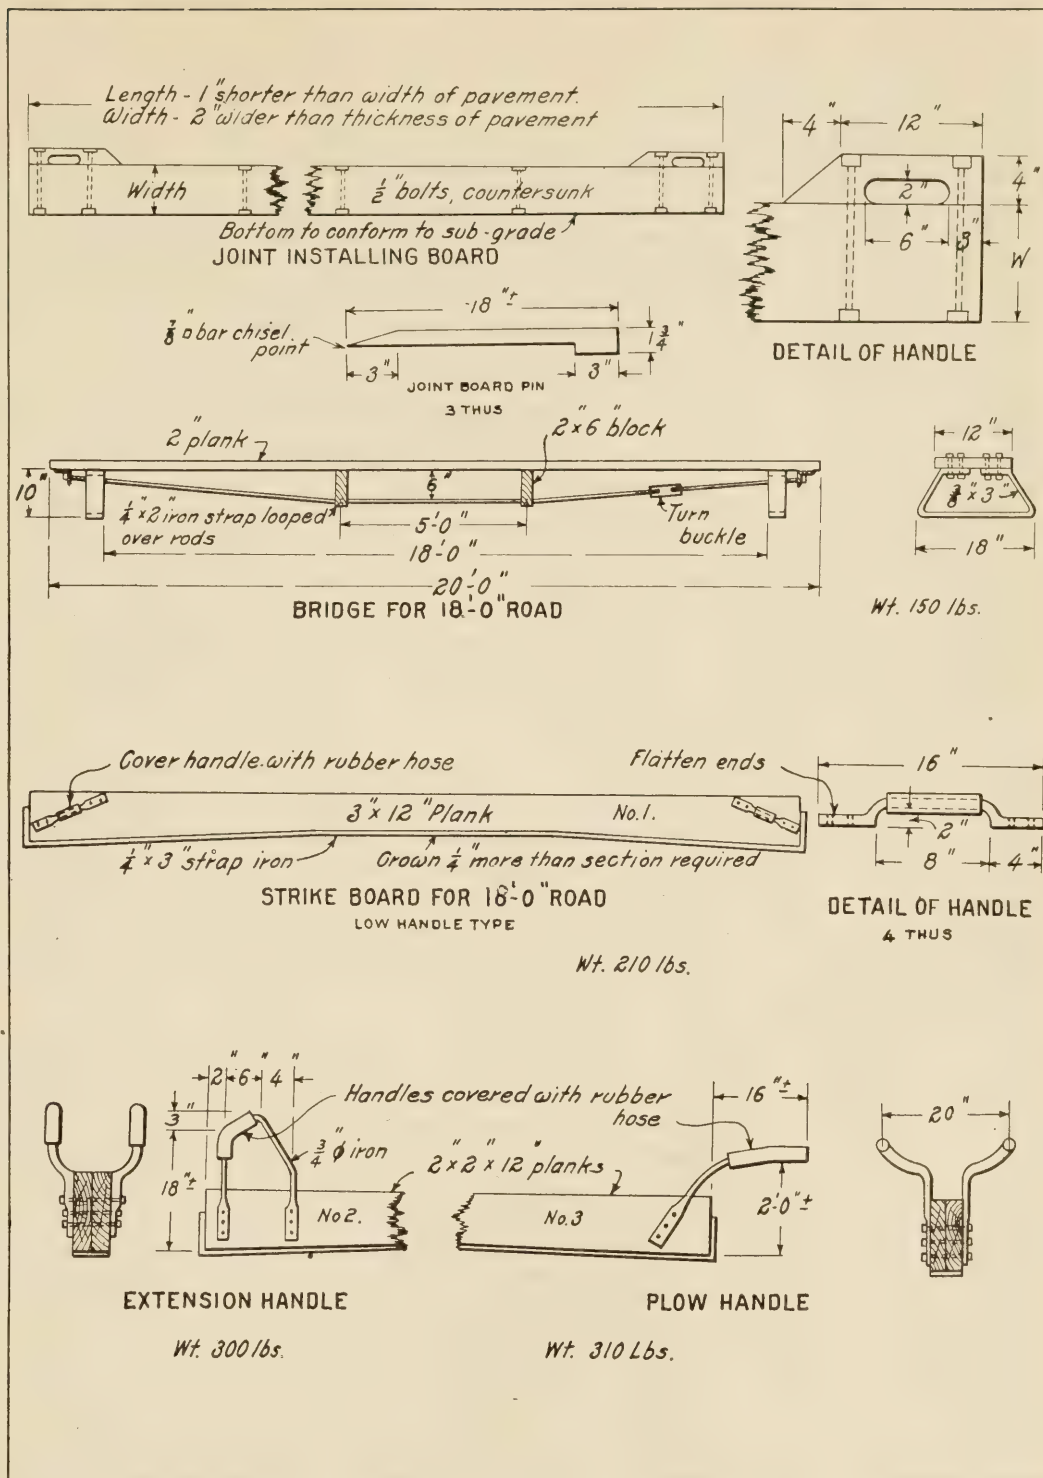 Length - 1" shorter than width of pavement.
Width - 2" wider than thickness of pavement
Width
1/2" bolts, countersunk
Bottom to conform to sub-grade
JOINT INSTALLING BOARD
4" 12"
4"
2"
6" 3"
W
DETAIL OF HANDLE
18"±
7/8" □ bar chisel
point
1 3/4"
3" 3"
JOINT BOARD PIN
3 THUS
2" plank
2"×6" block
10"
6"
1/4"×2" iron strap looped
over rods
5'-0"
Turn
buckle
18'-0"
20'-0"
BRIDGE FOR 18'-0" ROAD
12"
3/8"×3"
18"
Wt. 150 lbs.
Cover handle with rubber hose
3"×12" Plank No.1.
1/4"×3" strap iron
Crown 1/4" more than section required
STRIKE BOARD FOR 18'-0" ROAD
LOW HANDLE TYPE
Wt. 210 lbs.
Flatten ends
16"
2"
8" 4"
DETAIL OF HANDLE
4 THUS
2" 6" 4"
3"
18"±
Handles covered with rubber
hose
3/4" ϕ iron
2"×2"×12" planks
No2.
No.3
16"±
2'-0"±
20"
EXTENSION HANDLE
Wt. 300 lbs.
PLOW HANDLE
Wt. 310 Lbs.